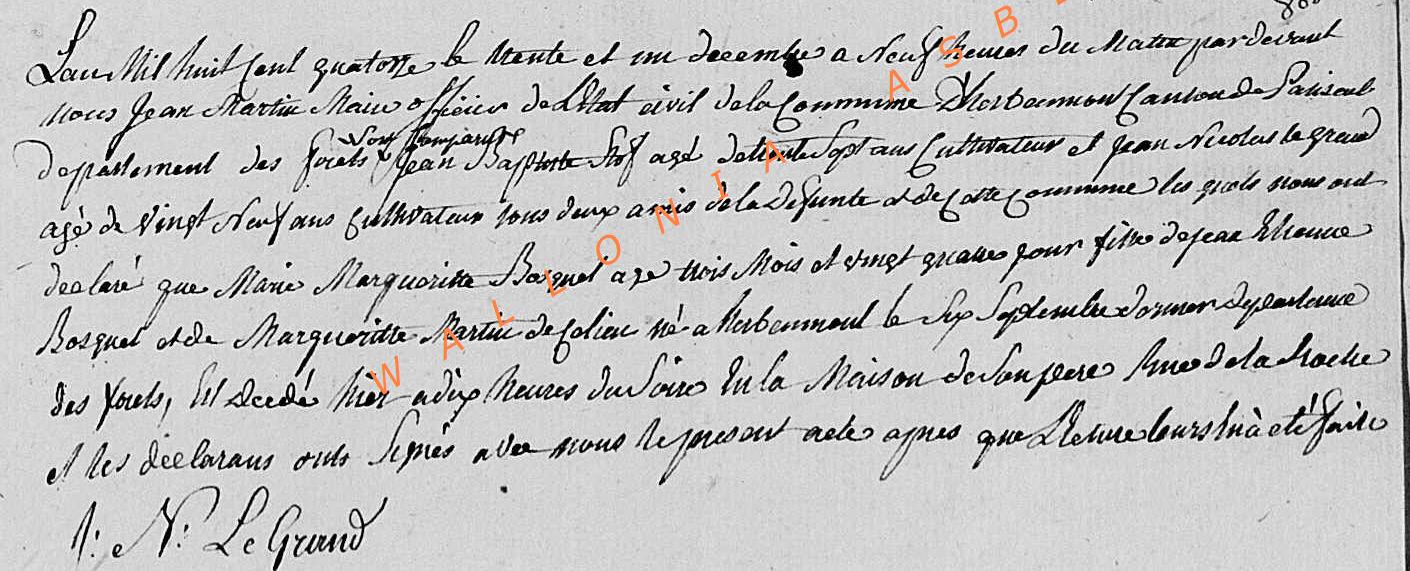 Lan Mil huit Cent quatorze le trente et un decembre a Neuf heures du Matin pardevant
nous Jean Martin Maire officier de L'Etat civil de la Commune D'herbeumont Canton de Paliseul
departement des forets Sont Comparus Jean Baptiste Stof agé de trente Sept ans Cultivateur et Jean Nicolas le grand
agé de Vingt Neuf ans Cultivateur tous deux amis de la Defunte et de Cette Commune les quels nous ont
declaré que Marie Margueritte Bosquet age trois Mois et vingt quatre jour fille de jean Etienne
Bosquet et de Margueritte Martin né a herbeumont le Six Septembre dernier departement
des forets, Est decedé hièr a dix heures du Soire En la Maison de Son pere Rue de la Roche
et les declarans onts Signés avec nous le present acte apres que Lecture leurs En à eté faite
j: N: Le Grand
WALLONIA ASB